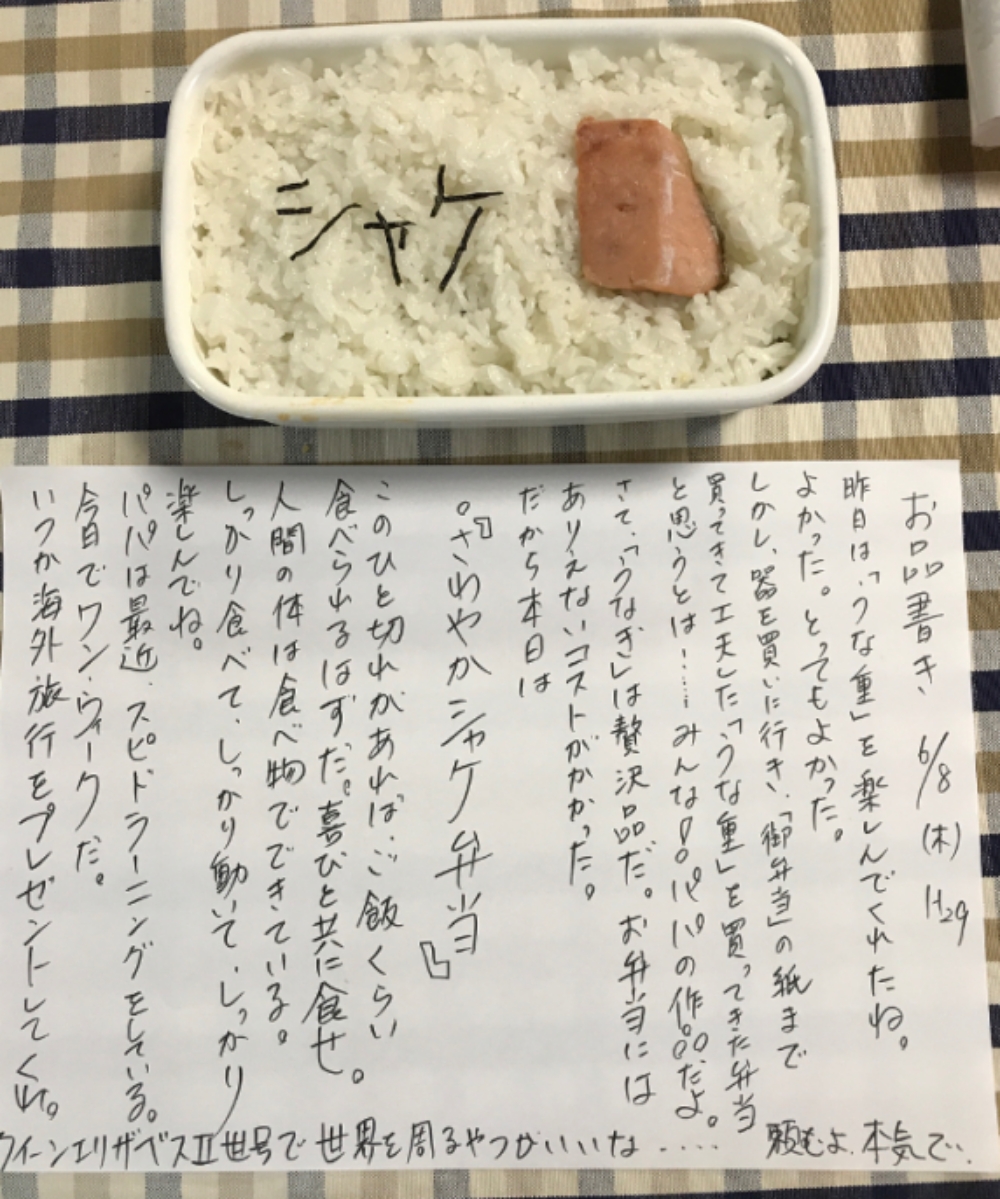 シャケ
お品書き、6/8(木)H29
昨日は、「うな重」を楽しんでくれたね。
よかった。とってもよかった。
しかし、器を買いに行き、「御弁当」の紙まで
買ってきて工夫した「うな重」を買ってきた弁当
と思うとは……みんな!!パパの作品だよ。
さて、「うなぎ」は贅沢品だ。お弁当には
ありえないコストがかかった。
だから本日は
『さわやかシャケ弁当』
このひと切れがあれば、ご飯くらい
食べられるはずだ。喜びと共に食せ。
人間の体は食べ物でできている。
しっかり食べて、しっかり動いて、しっかり
楽しんでね。
パパは最近、スピドラーニングをしている。
今日でワン・ウィークだ。
いつか海外旅行をプレゼントしてくれ。
クイーンエリザベスⅡ世号で世界を周るやつがいいな..... 頼むよ、本気で、